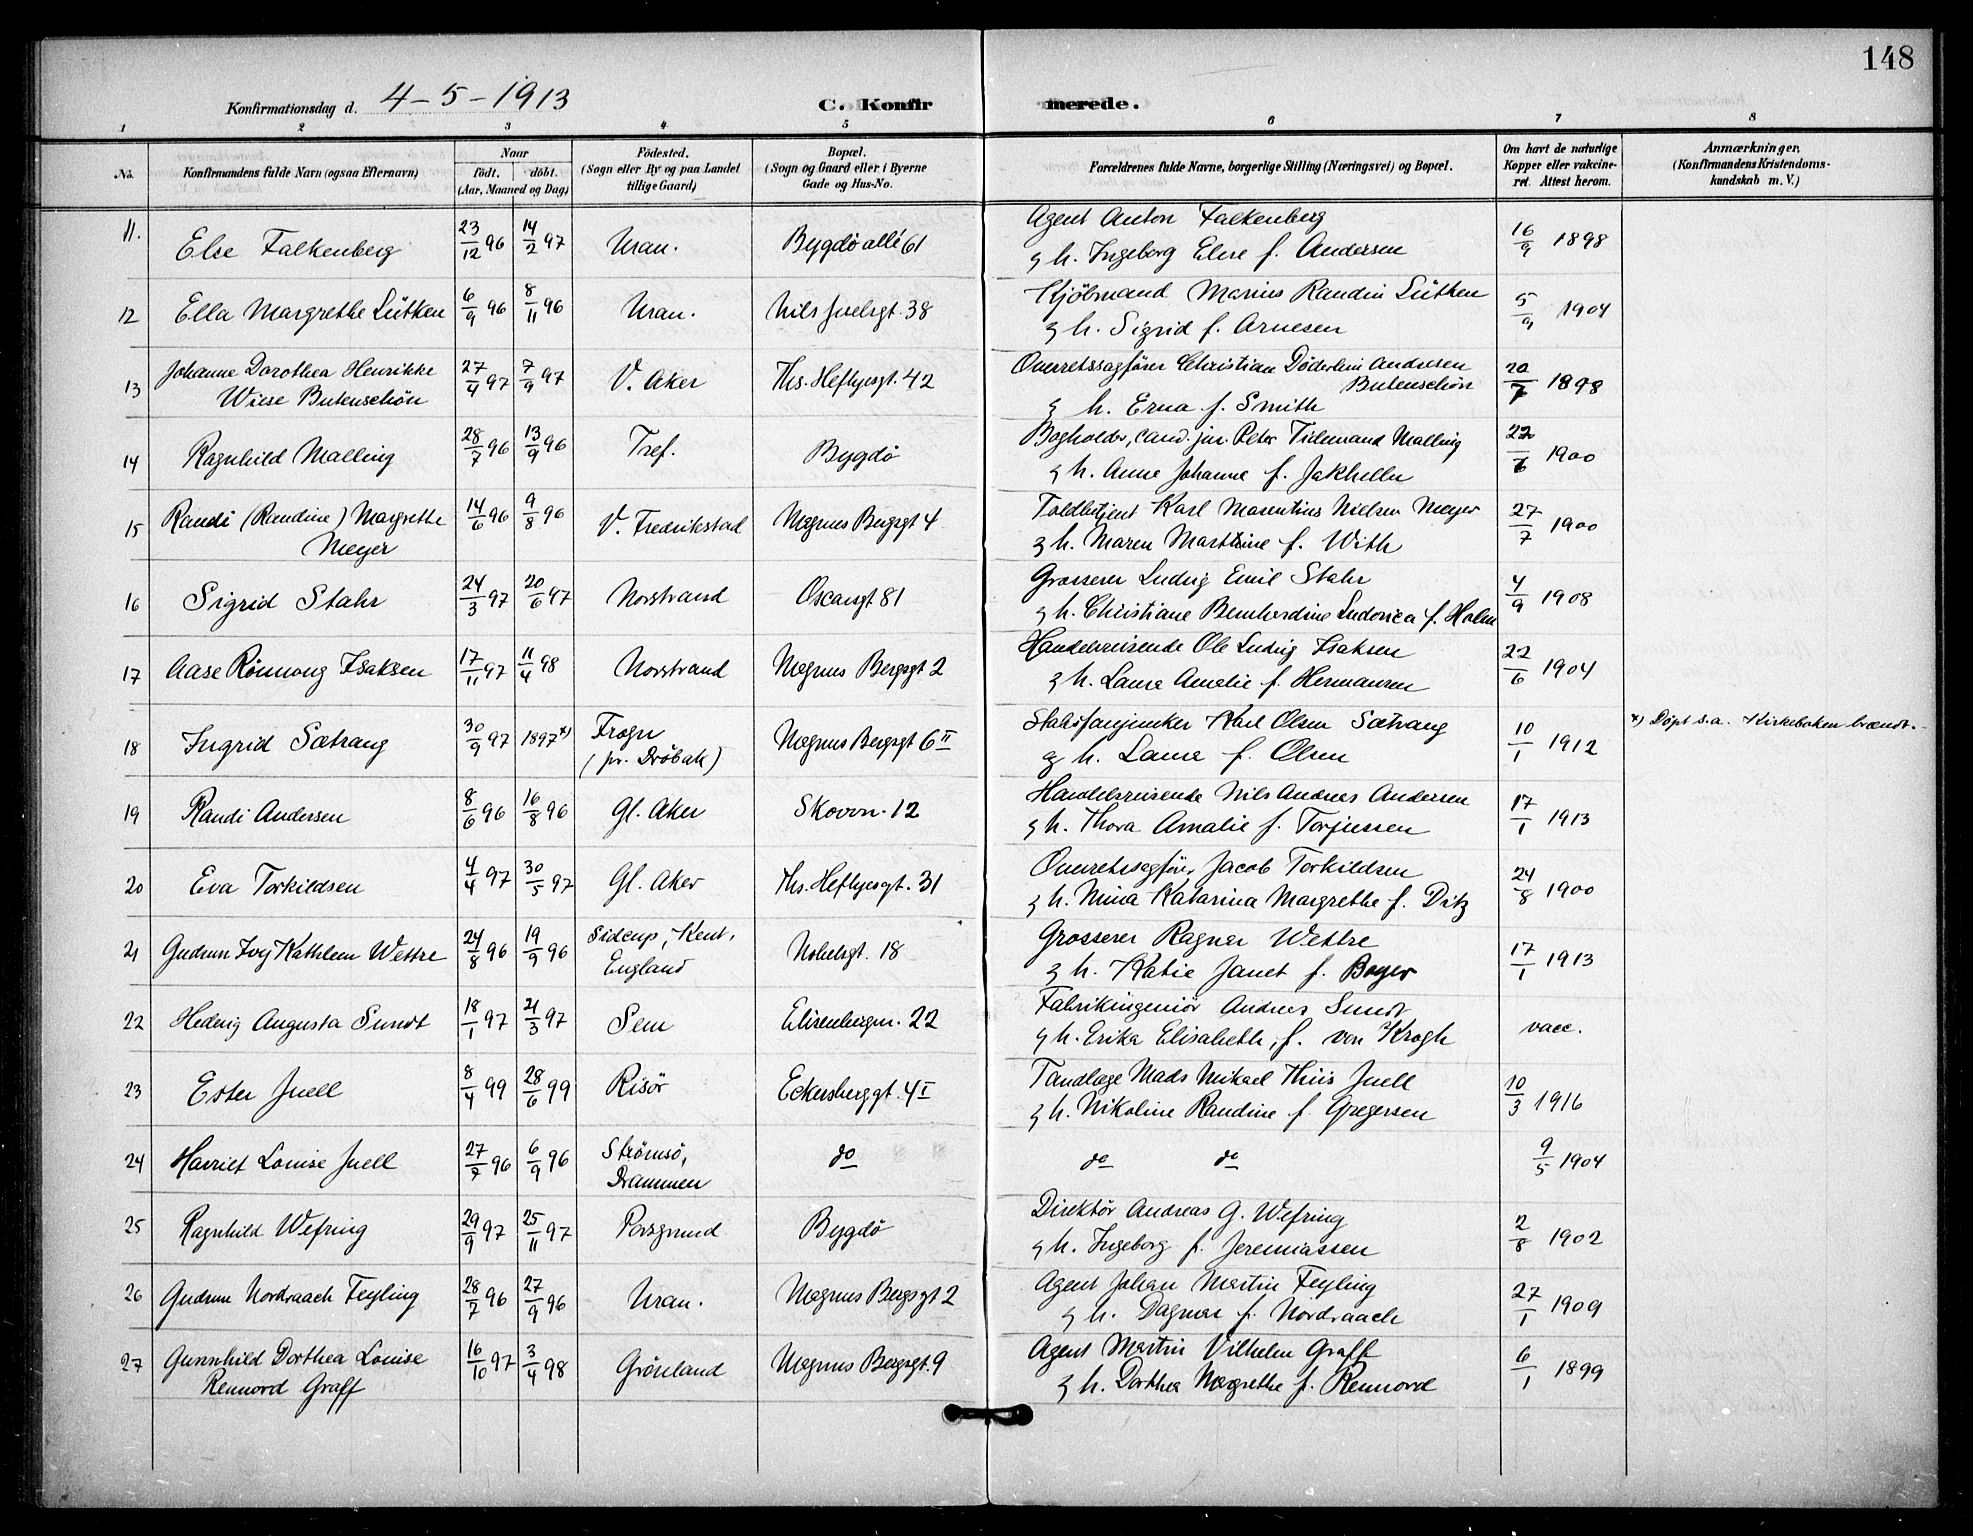 148
Konfirmationsdag d. 4-5-1913
C. Konfirmerede.
1 2 3 4 5 6 7 8
No. | Konfirmandens fulde Navn (ogsaa Efternavn) | Naar födt. döbt. (Aar, Maaned og Dag) | Födested. (Sogn eller By og paa Landet tillige Gaard) | Bopæl. (Sogn og Gaard eller i Byerne Gade og Hus-No. | Forældrenes fulde Navne, borgerlige Stilling (Næringsvei) og Bopæl. | Om havt de naturlige Kopper eller vakcineret. Attest herom. | Anmærkninger. (Konfirmandens Kristendomskundskab m. V.)
11. Else Falkenberg | 23/12 96 | 14/2 97 | Uran. | Bygdö allé 61 | Agent Anton Falkenberg
g h. Ingeborg Elise f. Andersen | 16/9 1898
12 Ella Margrethe Lütken | 6/9 96 | 8/11 96 | Uran. | Nils Juelsgt. 38 | Kjöbmand Marius Randin Lütken
g h. Sigrid f. Arnesen | 5/9 1904
13 Johanne Dorothea Henrikke
Wiese Butenschön | 27/4 97 | 7/9 97 | V. Aker | Ths. Heftyesgt. 42 | Overretssagförer Christian Döderlein Andresen
Butenschön
g h. Erna f. Smith | 20/7 1898
14 Ragnhild Malling | 28/7 96 | 13/9 96 | Tref. | Bygdö | Bogholder, cand. jur. Peter Tidemand Malling
g h. Anne Johanne f. Jakhelln | 22/6 1900
15 Randi (Randine) Margrethe
Meyer | 14/6 96 | 9/8 96 | V. Fredrikstad | Magnus Bergsgt 4 | Toldbetjent Karl Marentius Nielsen Meyer
g h. Maren Marthine f. With | 27/7 1900
16 Sigrid Stahr | 24/3 97 | 20/6 97 | Norstrand | Oscarsgt 81 | Grosserer Ludvig Emil Stahr
g h. Christiane Bernhardine Ludovica f. Holm | 4/9 1908
17 Aase Rönnaug Isaksen | 17/11 97 | 11/4 98 | Norstrand | Magnus Bergsgt 2 | Handelsreisende Ole Ludvig Isaksen
g h. Laura Amalie f. Hermansen | 22/6 1904
18 Ingrid Sætrang | 30/9 97 | 1897 x) | Frogn
(pr. Dröbak) | Magnus Bergsgt 6 II | Stabsfanejunker Karl Olsen Sætrang
g h. Laura f. Olsen | 10/1 1912 | x) Döpt s.a. Kirkeboken brændt.
19 Randi Andersen | 8/6 96 | 16/8 96 | Gl. Aker | Skovvn. 12 | Handelsreisende Nils Andreas Andersen
g h. Thora Amalie f. Torjussen | 17/1 1913
20 Eva Torkildsen | 4/4 97 | 30/5 97 | Gl. Aker | Ths. Heftyesgt. 31 | Overretssagförer Jacob Torkildsen
g h. Nina Katarina Margrethe f. Ditz | 24/8 1900
21 Gudrun Ivy Kathleen Wettre | 24/8 96 | 19/9 96 | Sidcup, Kent,
England | Nobelsgt. 18 | Grosserer Ragnar Wettre
g h. Katie Janet f. Boyer | 17/1 1913
22 Hedvig Augusta Sundt | 18/1 97 | 21/3 97 | Sem | Elisenbergvn. 22 | Fabrikingeniör Andreas Sundt
g h. Erika Elisabeth, f. von Krogh | vacc.
23 Ester Juell | 8/4 99 | 28/6 99 | Risör | Eckersberggt. 4 I | Tandlæge Mads Mikael Thiis Juell
g h. Nikoline Randine f. Gregersen | 10/3 1916
24 Harriet Louise Juell | 27/7 96 | 6/9 96 | Strömsö,
Drammen | do | do do | 9/5 1904
25 Ragnhild Wefring | 29/9 97 | 25/11 97 | Porsgrund | Bygdö | Direktör Andreas G. Wefring
g h. Ingeborg f. Jeremiassen | 2/8 1902
26 Gudrun Nordraach Feyling | 28/7 96 | 27/9 96 | Uran. | Magnus Bergsgt 2 | Agent Johan Martin Feyling
g h. Dagmar f. Nordraach | 27/1 1909
27 Gunnhild Dorthea Louise
Rennord Graff | 16/10 97 | 3/4 98 | Grönland | Magnus Bergsgt. 9 | Agent Martin Vilhelm Graff
g h. Dorthea Margrethe f. Rennord | 6/1 1899